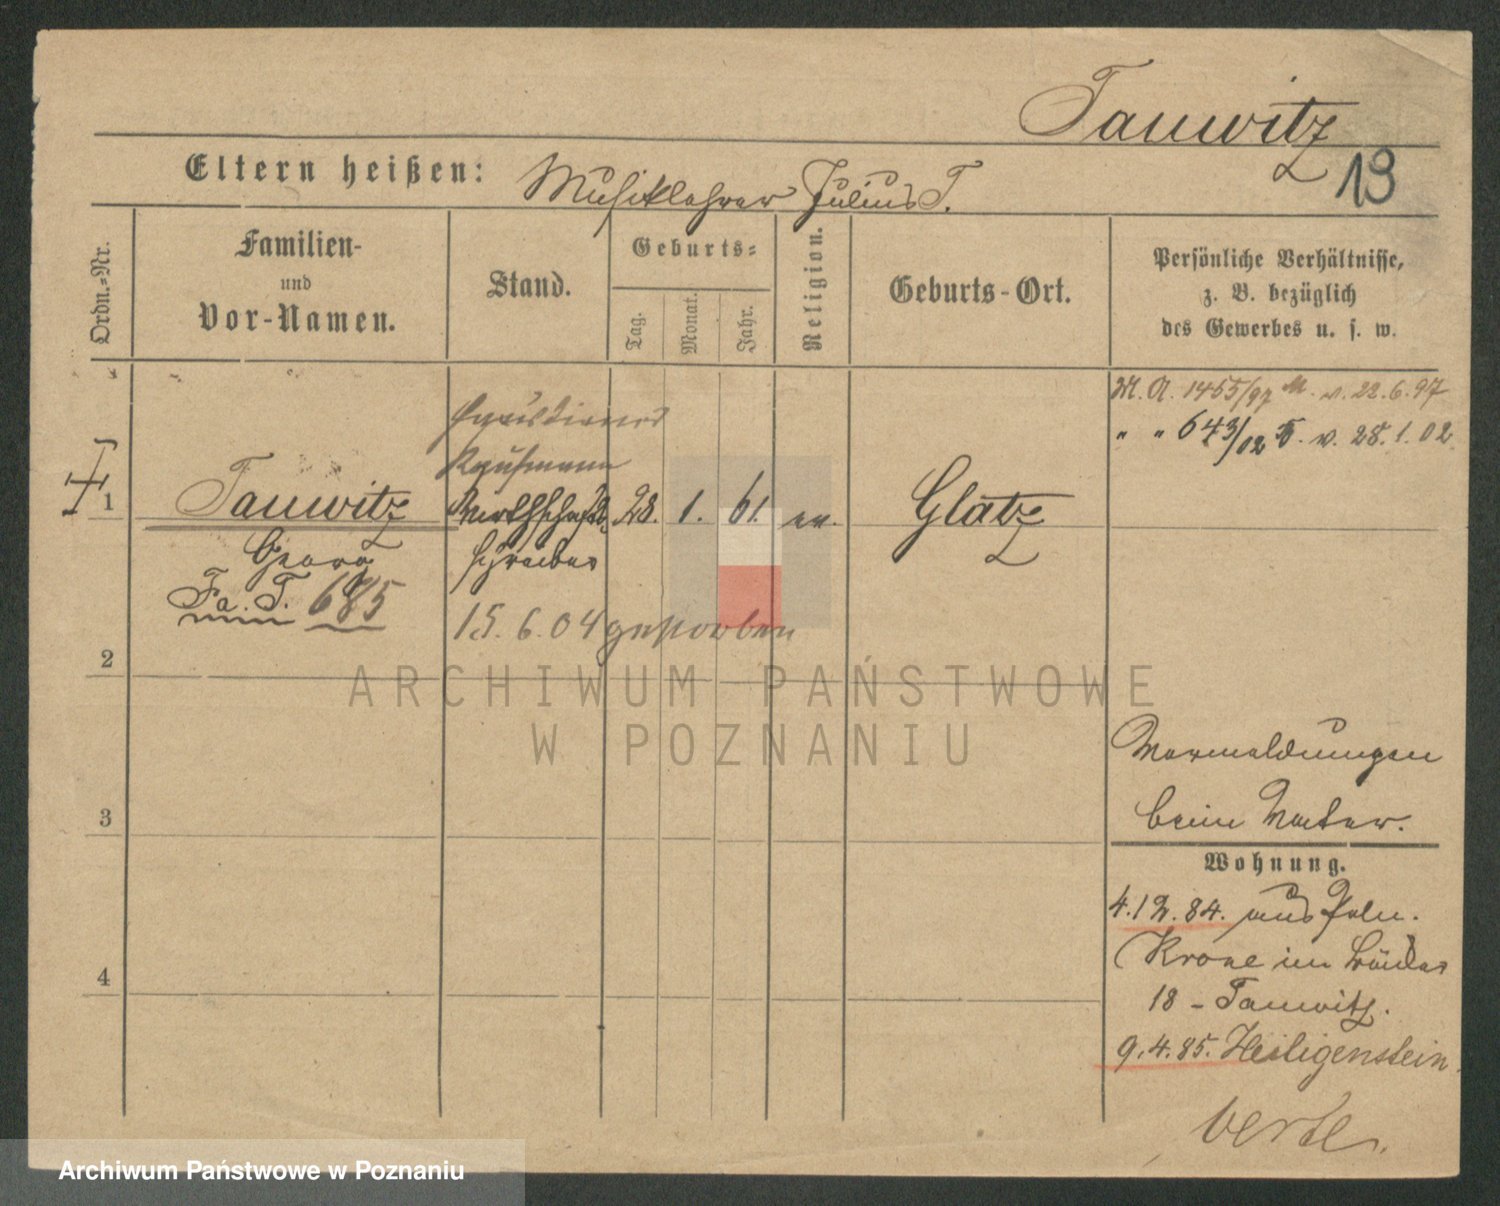 Tauwitz
13
Eltern heißen: Musiklehrer Julius T.
Ordn.-Nr.
Familien-
und
Vor-Namen.
Stand.
Geburts-
Tag.
Monat.
Jahr.
Religion.
Geburts-Ort.
Persönliche Verhältnisse,
z. B. bezüglich
des Gewerbes u. s. w.
M. A. 1455/97 M. v. 22.6.97
" " 643/02 T. v. 28.1.02
Kaufmann
1 Tauwitz Wirthschafts- 28. 1. 61. ev. Glatz
Georg schreiber
Fa. T. 685
15.6.04 gestorben
2
Vermeldungen
3 beim Vater.
Wohnung.
4.12.84. aus Poln.
Krone im
4
18 - Tauwitz.
9.4.85. Heiligenstein
verte.
ARCHIWUM PAŃSTWOWE
W POZNANIU
Archiwum Państwowe w Poznaniu